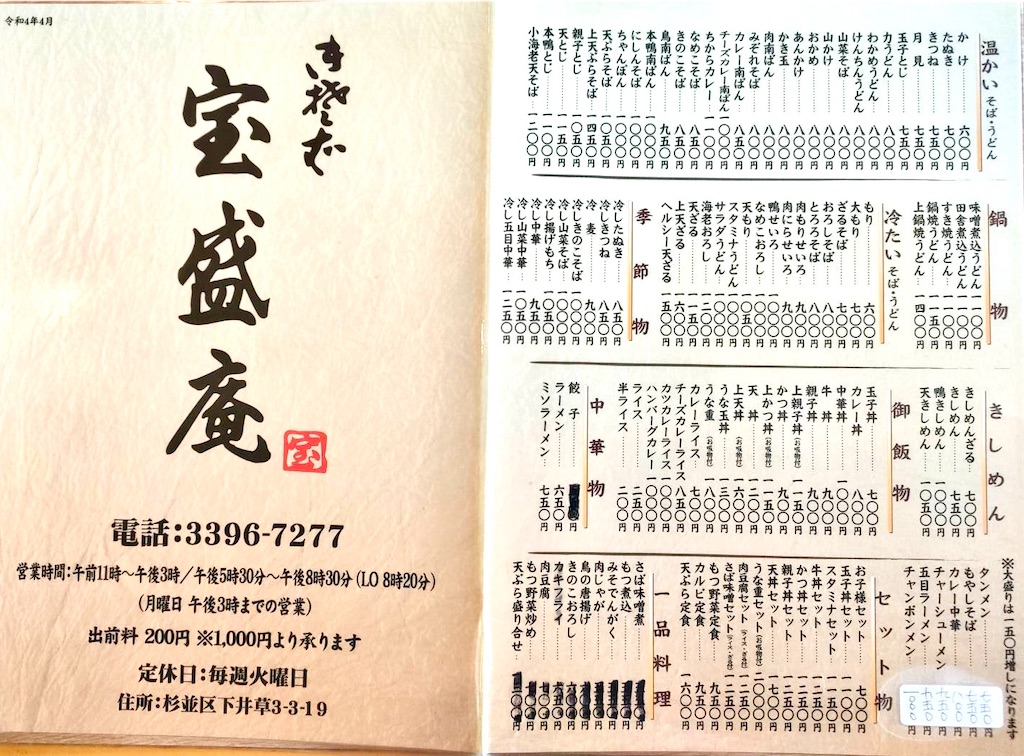 令和4年4月
生そば
宝盛庵
宝
電話:3396-7277
営業時間:午前11時〜午後3時/午後5時30分〜午後8時30分(LO 8時20分)
(月曜日 午後3時までの営業)
出前料 200円 ※1,000円より承ります
定休日:毎週火曜日
住所:杉並区下井草3-3-19
温かい そば・うどん
かけ 六〇〇円
たぬき 七〇〇円
きつね 七五〇円
月見 七五〇円
玉子とじ 七五〇円
力うどん 八〇〇円
わかめうどん 八〇〇円
けんちんうどん 八〇〇円
山菜そば 八〇〇円
山かけ 八〇〇円
おかめ 八〇〇円
あんかけ 八〇〇円
かき玉 八〇〇円
肉南ばん
みぞれそば
カレー南ばん 八五〇円
チーズカレー南ばん
ちからカレー
なめこそば 八五〇円
きのこそば 八五〇円
鳥南ばん 九五〇円
本鴨南ばん
にしんそば 一〇〇〇円
ちゃんぽん 一〇〇〇円
天ぷらそば 一〇五〇円
上天ぷらそば 一四五〇円
親子とじ 一〇五〇円
天とじ 一一五〇円
本鴨とじ
小海老天そば 一二〇〇円
鍋物
味噌煮込うどん 一一〇〇円
田舎煮込うどん 一〇〇〇円
すき焼うどん 一〇〇〇円
鍋焼うどん 一一五〇円
上鍋焼うどん 一四〇〇円
冷たい そば・うどん
もり 六〇〇円
大もり 七〇〇円
ざるそば 七〇〇円
おろしそば 八〇〇円
とろろそば 八〇〇円
肉もりせいろ 九〇〇円
肉にらせいろ 九〇〇円
鴨せいろ
なめこおろし
天もり
スタミナうどん
サラダうどん
海老おろし
天ざる 一一五〇円
上天ざる 一六〇〇円
ヘルシー天ざる 一五〇〇円
季節物
冷したぬき 八五〇円
冷しきつね 八五〇円
冷麦 九〇〇円
冷しきのこそば
冷し山菜そば
冷し揚げもち
冷し中華 九五〇円
冷し山菜中華
冷し五目中華 一二五〇円
きしめん
きしめんざる 七〇〇円
きしめん 七五〇円
鴨きしめん 一一〇〇円
天きしめん 一〇五〇円
御飯物
玉子丼 七〇〇円
カレー丼 八〇〇円
中華丼
牛丼 九〇〇円
親子丼 九〇〇円
上親子丼(お吸物付) 一一五〇円
かつ丼
上かつ丼(お吸物付) 一一五〇円
天丼
上天丼(お吸物付) 一六〇〇円
うな玉丼 一三〇〇円
うな重(お吸物付) 一八〇〇円
カレーライス 七五〇円
チーズカレーライス 八五〇円
カツカレーライス 一〇〇〇円
ハンバーグカレー 一〇〇〇円
ライス 二五〇円
半ライス 二〇〇円
中華物
餃子
ラーメン 六五〇円
ミソラーメン 七五〇円
※大盛りは一五〇円増しになります
タンメン 七五〇円
もやしそば
カレー中華
チャーシューメン
五目ラーメン
チャンポンメン
セット物
お子様セット 七〇〇円
玉子丼セット
スタミナセット
牛丼セット
かつ丼セット
親子丼セット
天丼セット
うな重セット(お吸物付)
肉豆腐セット(ライス・お新香付)
さば味噌セット(ライス・お新香付)
もつ野菜定食 九五〇円
カルビ定食 九五〇円
天ぷら定食 一六〇〇円
一品料理
さば味噌煮
もつ煮込
みそでんがく
肉じゃが
鳥の唐揚げ
きのこおろし
カキフライ
肉豆腐
もつ野菜炒め
天ぷら盛り合せ